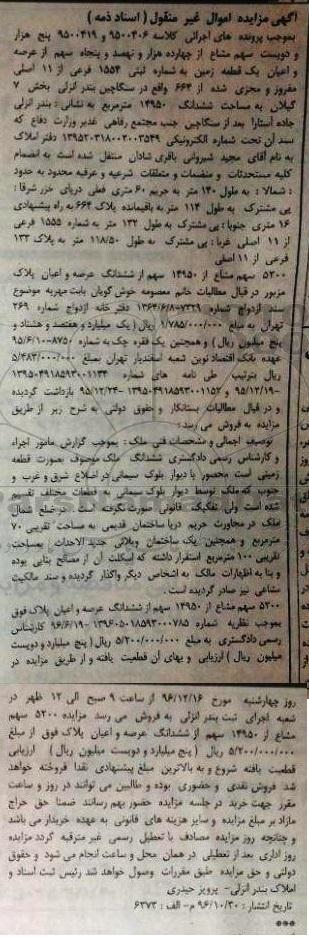 آگهی مزایده اموال غیر منقول ( اسناد ذمه )
بموجب پرونده های اجرائی کلاسه ۹۵۰۰۴۰۶ و ۹۵۰۰۴۱۹ پنج هزار
و دویست سهم مشاع از چهارده هزار و نهصد و پنجاه سهم از عرصه
و اعیان یک قطعه زمین به شماره ثبتی ۱۵۵۴ فرعی از ۱۱ اصلی
مفروز و مجزی شده از ۶۶۳ واقع در سنگاچین بندر انزلی بخش ۷
گیلان به مساحت ششدانگ ۱۴۹۵۰ مترمربع به نشانی : بندر انزلی
جاده آستارا بعد از سنگاچین جنب مجتمع رفاهی غدیر وزارت دفاع که
سند آن تحت شماره الکترونیکی ۱۳۹۵۲۰۳۱۸۰۰۲۰۰۳۵۴۹ دفتر املاک
به نام آقای مجید شیروانی باقری شادان منتقل شده است به انضمام
کلیه مستحدثات و منضمات و متعلقات شرعیه و عرفیه محدود به حدود
: شمالا : به طول ۱۴۰ متر به حریم ۶۰ متری فعلی دریای خزر شرقا :
پی مشترک به طول ۱۱۴ متر به باقیمانده پلاک ۶۶۴ به راه پیشنهادی
۱۶ متری جنوبا : پی مشترک به طول ۱۳۲ متر به شماره ۱۵۵۵ فرعی
از ۱۱ اصلی غربا : پی مشترک به طول ۱۱۸/۵۰ متر به پلاک ۱۳۳
فرعی از ۱۱ اصلی
۵۲۰۰ سهم مشاع از ۱۴۹۵۰ سهم از ششدانگ عرصه و اعیان پلاک
مزبور در قبال مطالبات خانم معصومه خوش گویان بابت مهریه موضوع
سند ازدواج شماره ۷۳۲۹-۱۳۶۴/۶/۸ دفتر خانه ازدواج شماره ۲۶۹
تهران به مبلغ ۱/۷۸۵/۰۰۰/۰۰۰ ریال ( یک میلیارد و هفتصد و هشتاد و
پنج میلیون ریال ) و همچنین یک فقره چک به شماره ۸۷۵۰-۹۵/۶/۱۰
عهده بانک اقتصاد نوین شعبه اسفندیار تهران بمبلغ ۵/۴۸۳/۰۰۰/۰۰۰
ریال بترتیب طی نامه های شماره ۱۳۹۵۰۴۹۱۸۵۹۳۰۰۱۱۳۴
-۹۵/۱۲/۱۹ و ۱۳۹۵۰۴۹۱۸۵۹۳۰۰۱۱۵۲ -۹۵/۱۲/۲۴ بازداشت گردیده
و در قبال مطالبات بستانکار و حقوق دولتی به شرح زیر از طریق
مزایده به فروش می رسد :
توصیف اجمالی و مشخصات فنی ملک : بموجب گزارش مامور اجراء
و کارشناس رسمی دادگستری ششدانگ ملک موصوف بصورت قطعه
زمینی است محصور با دیوار بلوک سیمانی در اضلاع شرق و غرب و
جنوب که ملک توسط دیوار بلوک سیمانی به قطعات مختلف تقسیم
شده است ولی تفکیک قانونی صورت نگرفته است . در ضلع شمال
ملک در مجاورت حریم دریا ساختمان قدیمی به مساحت تقریبی ۷۰
مترمربع و همچنین یک ساختمان ویلائی جدید الاحداث بمساحت
تقریبی ۱۰۰ مترمربع استقرار داشته که اسکلت آن از مصالح بنایی بوده
و بنا به اظهارات مالک به اشخاص دیگر واگذار گردیده و سند مالکیت
مشاعی نیز صادر گردیده است .
۵۲۰۰ سهم مشاع از ۱۴۹۵۰ سهم از ششدانگ عرصه و اعیان پلاک فوق
بموجب نظریه شماره ۱۳۹۶۰۵۰۱۸۵۹۳۰۰۰۷۸۵ -۹۶/۶/۱۹ کارشناس
رسمی دادگستری به مبلغ ۵/۲۰۰/۰۰۰/۰۰۰ ریال ( پنج میلیارد و دویست
میلیون ریال ) ارزیابی و بهای آن قطعیت یافته و از طریق مزایده در
روز چهارشنبه مورخ ۹۶/۱۲/۱۶ از ساعت ۹ صبح الی ۱۲ ظهر در
شعبه اجرای ثبت بندر انزلی به فروش می رسد مزایده ۵۲۰۰ سهم
مشاع از ۱۴۹۵۰ سهم از ششدانگ عرصه و اعیان پلاک فوق از مبلغ
۵/۲۰۰/۰۰۰/۰۰۰ ریال ( پنج میلیارد و دویست میلیون ریال ) ارزیابی
قطعیت یافته شروع و به بالاترین مبلغ پیشنهادی نقدا فروخته خواهد
شد فروش نقدی و حضوری بوده و طالبین می توانند در روز و ساعت
مقرر جهت خرید در جلسه مزایده حضور بهم رسانند ضمنا حق حراج
مازاد بر مبلغ مزایده و سایر هزینه های قانونی به عهده خریدار می باشد
و چنانچه روز مزایده مصادف با تعطیل رسمی غیر مترقبه گردد مزایده
روز اداری بعد از تعطیلی در همان محل و ساعت انجام می شود و حقوق
دولتی و حق مزایده طبق مقررات وصول خواهد شد رئیس ثبت اسناد و
املاک بندر انزلی- پرویز حیدری
تاریخ انتشار : ۹۶/۱۰/۳۰ م- الف : ۶۳۷۳
***